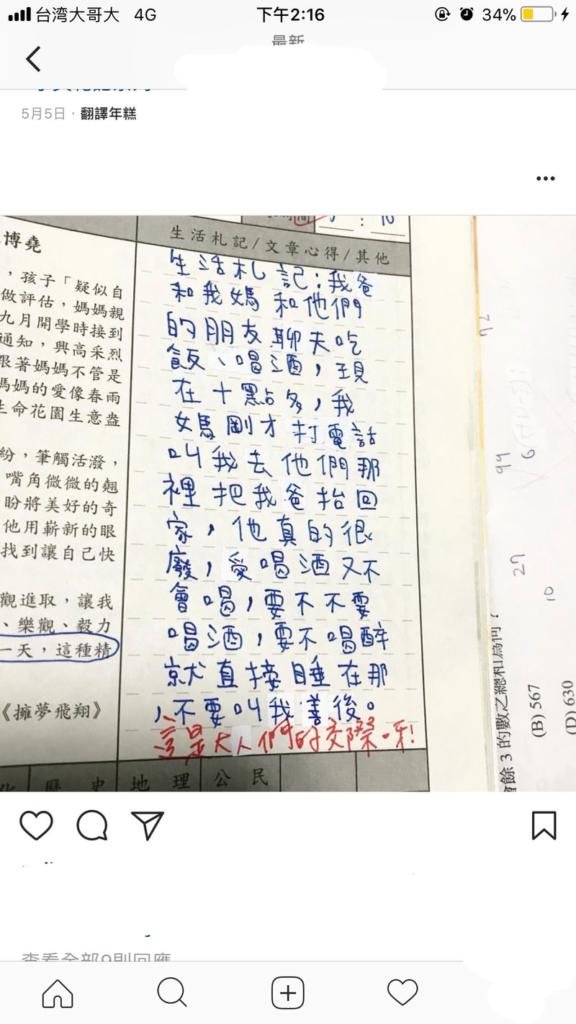 台湾大哥大 4G 下午2:16 34%
最新
5月5日 · 翻譯年糕
博堯
生活札記/文章心得/其他
，孩子「疑似自
做評估，媽媽親
九月開學時接到
通知，興高采烈
跟著媽媽不管是
媽媽的愛像春雨
生命花園生意盎
紛，筆觸活潑，
嘴角微微的翹
盼將美好的奇
他用嶄新的眼
找到讓自己快
觀進取，讓我
、樂觀、毅力
一天，這種精
《擁夢飛翔》
生活札記：我爸
和我媽和他們
的朋友聊天吃
飯、喝酒，現
在十點多，我
媽剛才打電話
叫我去他們那
裡把我爸抬回
家，他真的很
廢，愛喝酒又不
會喝，要不不要
喝酒，要不喝醉
就直接睡在那
，不要叫我善後。
這是大人們的交際呀！
歷史 地理 公民
27
10
餘 3 的數之總和為何？
(B) 567
(D) 630
查看全部9則回應